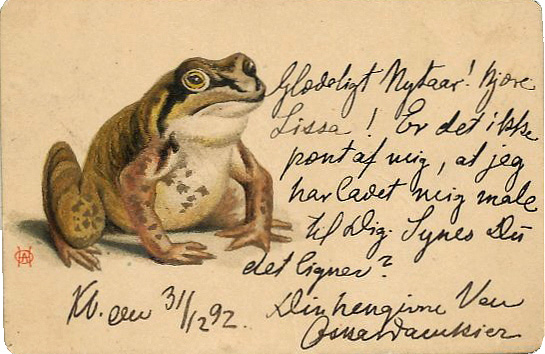 Glædeligt Nytaar! Kjære
Lissa! Er det ikke
pænt af mig, at jeg
har ladet mig male
til Dig. Synes Du
det ligner?
Kb. den 31/12 92.
Din hengivne Ven
Oscar